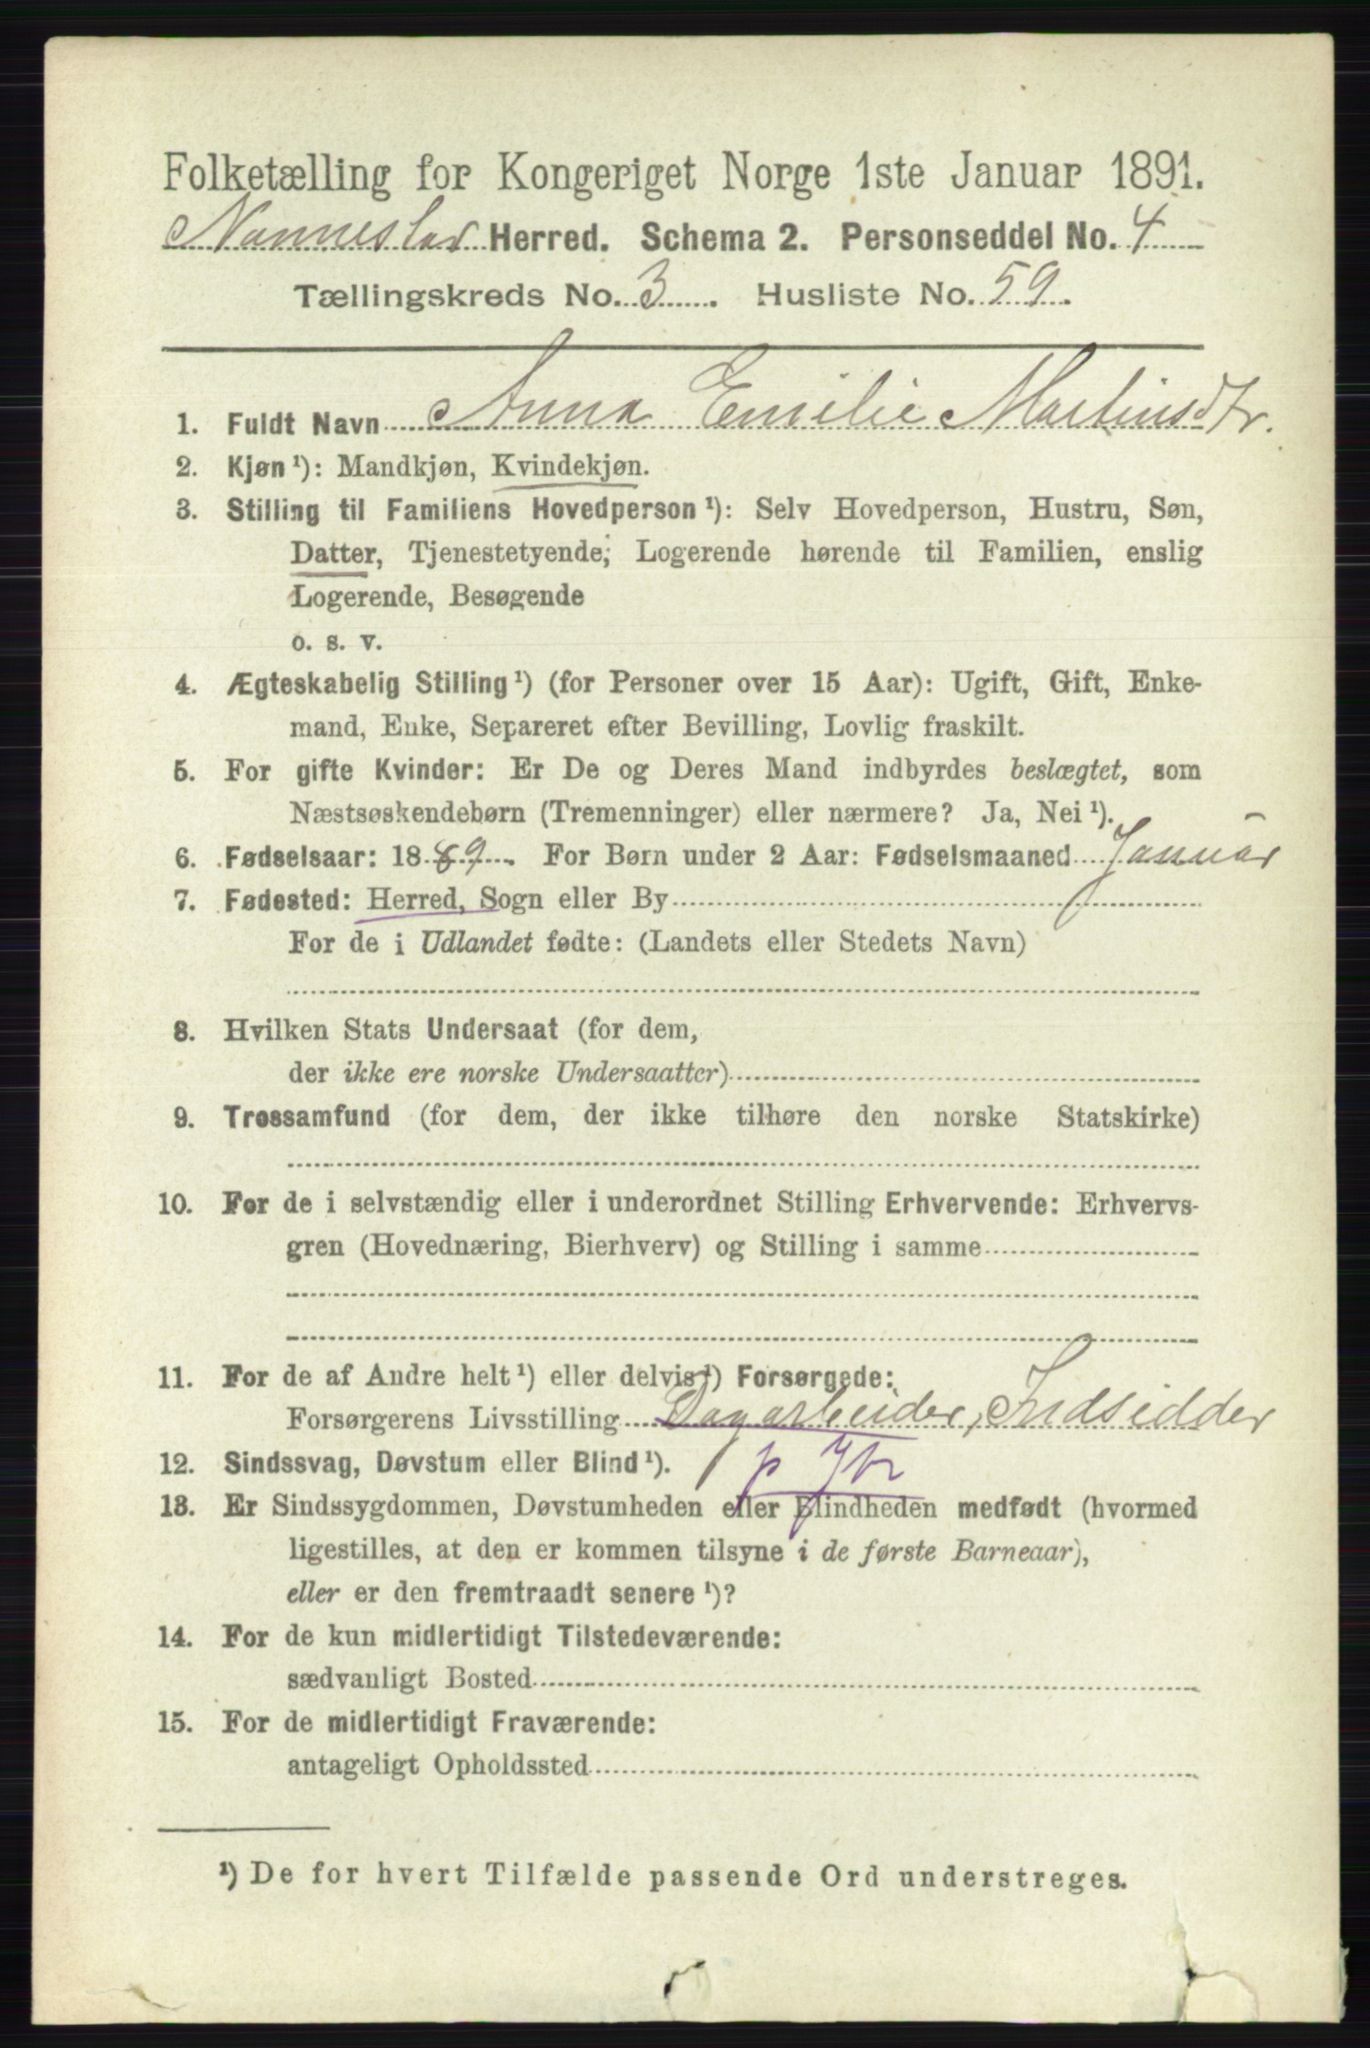 Folketælling for Kongeriget Norge 1ste Januar 1891.
Nannestad Herred. Schema 2. Personseddel No. 4
Tællingskreds No. 3. Husliste No. 59.
1. Fuldt Navn Anna Emilie Martinsdtr.
2. Kjøn ¹): Mandkjøn, Kvindekjøn.
3. Stilling til Familiens Hovedperson ¹): Selv Hovedperson, Hustru, Søn,
Datter, Tjenestetyende, Logerende hørende til Familien, enslig
Logerende, Besøgende
o. s. v.
4. Ægteskabelig Stilling ¹) (for Personer over 15 Aar): Ugift, Gift, Enke-
mand, Enke, Separeret efter Bevilling, Lovlig fraskilt.
5. For gifte Kvinder: Er De og Deres Mand indbyrdes beslægtet, som
Næstsøskendebørn (Tremenninger) eller nærmere? Ja, Nei ¹).
6. Fødselsaar: 1889. For Børn under 2 Aar: Fødselsmaaned Januar
7. Fødested: Herred, Sogn eller By
For de i Udlandet fødte: (Landets eller Stedets Navn)
8. Hvilken Stats Undersaat (for dem,
der ikke ere norske Undersaatter)
9. Trossamfund (for dem, der ikke tilhøre den norske Statskirke)
10. For de i selvstændig eller i underordnet Stilling Erhvervende: Erhvervs-
gren (Hovednæring, Bierhverv) og Stilling i samme
11. For de af Andre helt ¹) eller delvis ¹) Forsørgede:
Forsørgerens Livsstilling Dagarbeider, Indsidder
12. Sindssvag, Døvstum eller Blind ¹).
13. Er Sindssygdommen, Døvstumheden eller Blindheden medfødt (hvormed
ligestilles, at den er kommen tilsyne i de første Barneaar),
eller er den fremtraadt senere ¹)?
14. For de kun midlertidigt Tilstedeværende:
sædvanligt Bosted
15. For de midlertidigt Fraværende:
antageligt Opholdssted
¹) De for hvert Tilfælde passende Ord understreges.